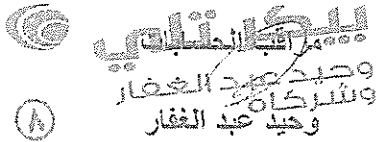 بيكر تللي
مراقبة الحسابات
وحيد عبد الغفار
وشركاه
وحيد عبد الغفار
٨